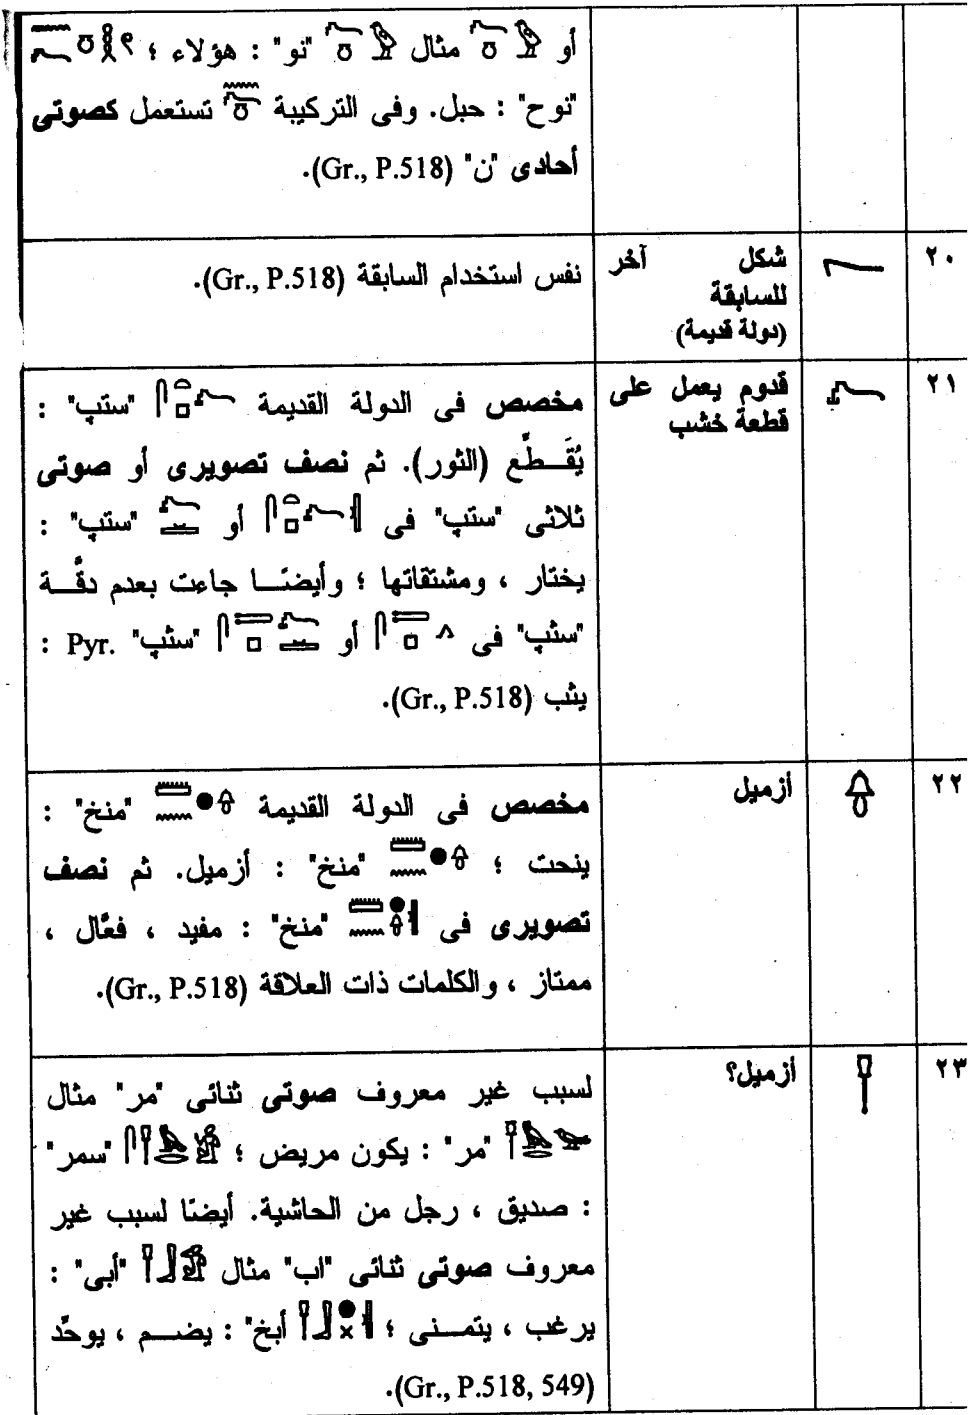 أو 𓐍 مثال "نو" : هؤلاء ؛
"نوح" : حبل. وفى التركيبة تستعمل كصوتى
أحادى "ن" (Gr., P.518).
٢٠
شكل آخر
للسابقة
(دولة قديمة)
نفس استخدام السابقة (Gr., P.518).
٢١
قدوم يعمل على
قطعة خشب
مخصص فى الدولة القديمة "ستپ" :
يُقَـطِّع (الثور). ثم نصف تصويرى أو صوتى
ثلاثى "ستپ" فى أو "ستپ" :
يختار ، ومشتقاتها ؛ وأيضًا جاءت بعدم دقَّـة
"سثپ" فى أو "سثپ" Pyr. :
يثب (Gr., P.518).
٢٢
أزميل
مخصص فى الدولة القديمة "منخ" :
ينحت ؛ "منخ" : أزميل. ثم نصف
تصويرى فى "منخ" : مفيد ، فعَّال ،
ممتاز ، والكلمات ذات العلاقة (Gr., P.518).
٢٣
أزميل؟
لسبب غير معروف صوتى ثنائى "مر" مثال
"مر" : يكون مريض ؛ "سمر"
: صديق ، رجل من الحاشية. أيضًا لسبب غير
معروف صوتى ثنائى "اب" مثال "أبى" :
يرغب ، يتمـنى ؛ أبخ" : يضـم ، يوحِّد
(Gr., P.518, 549).